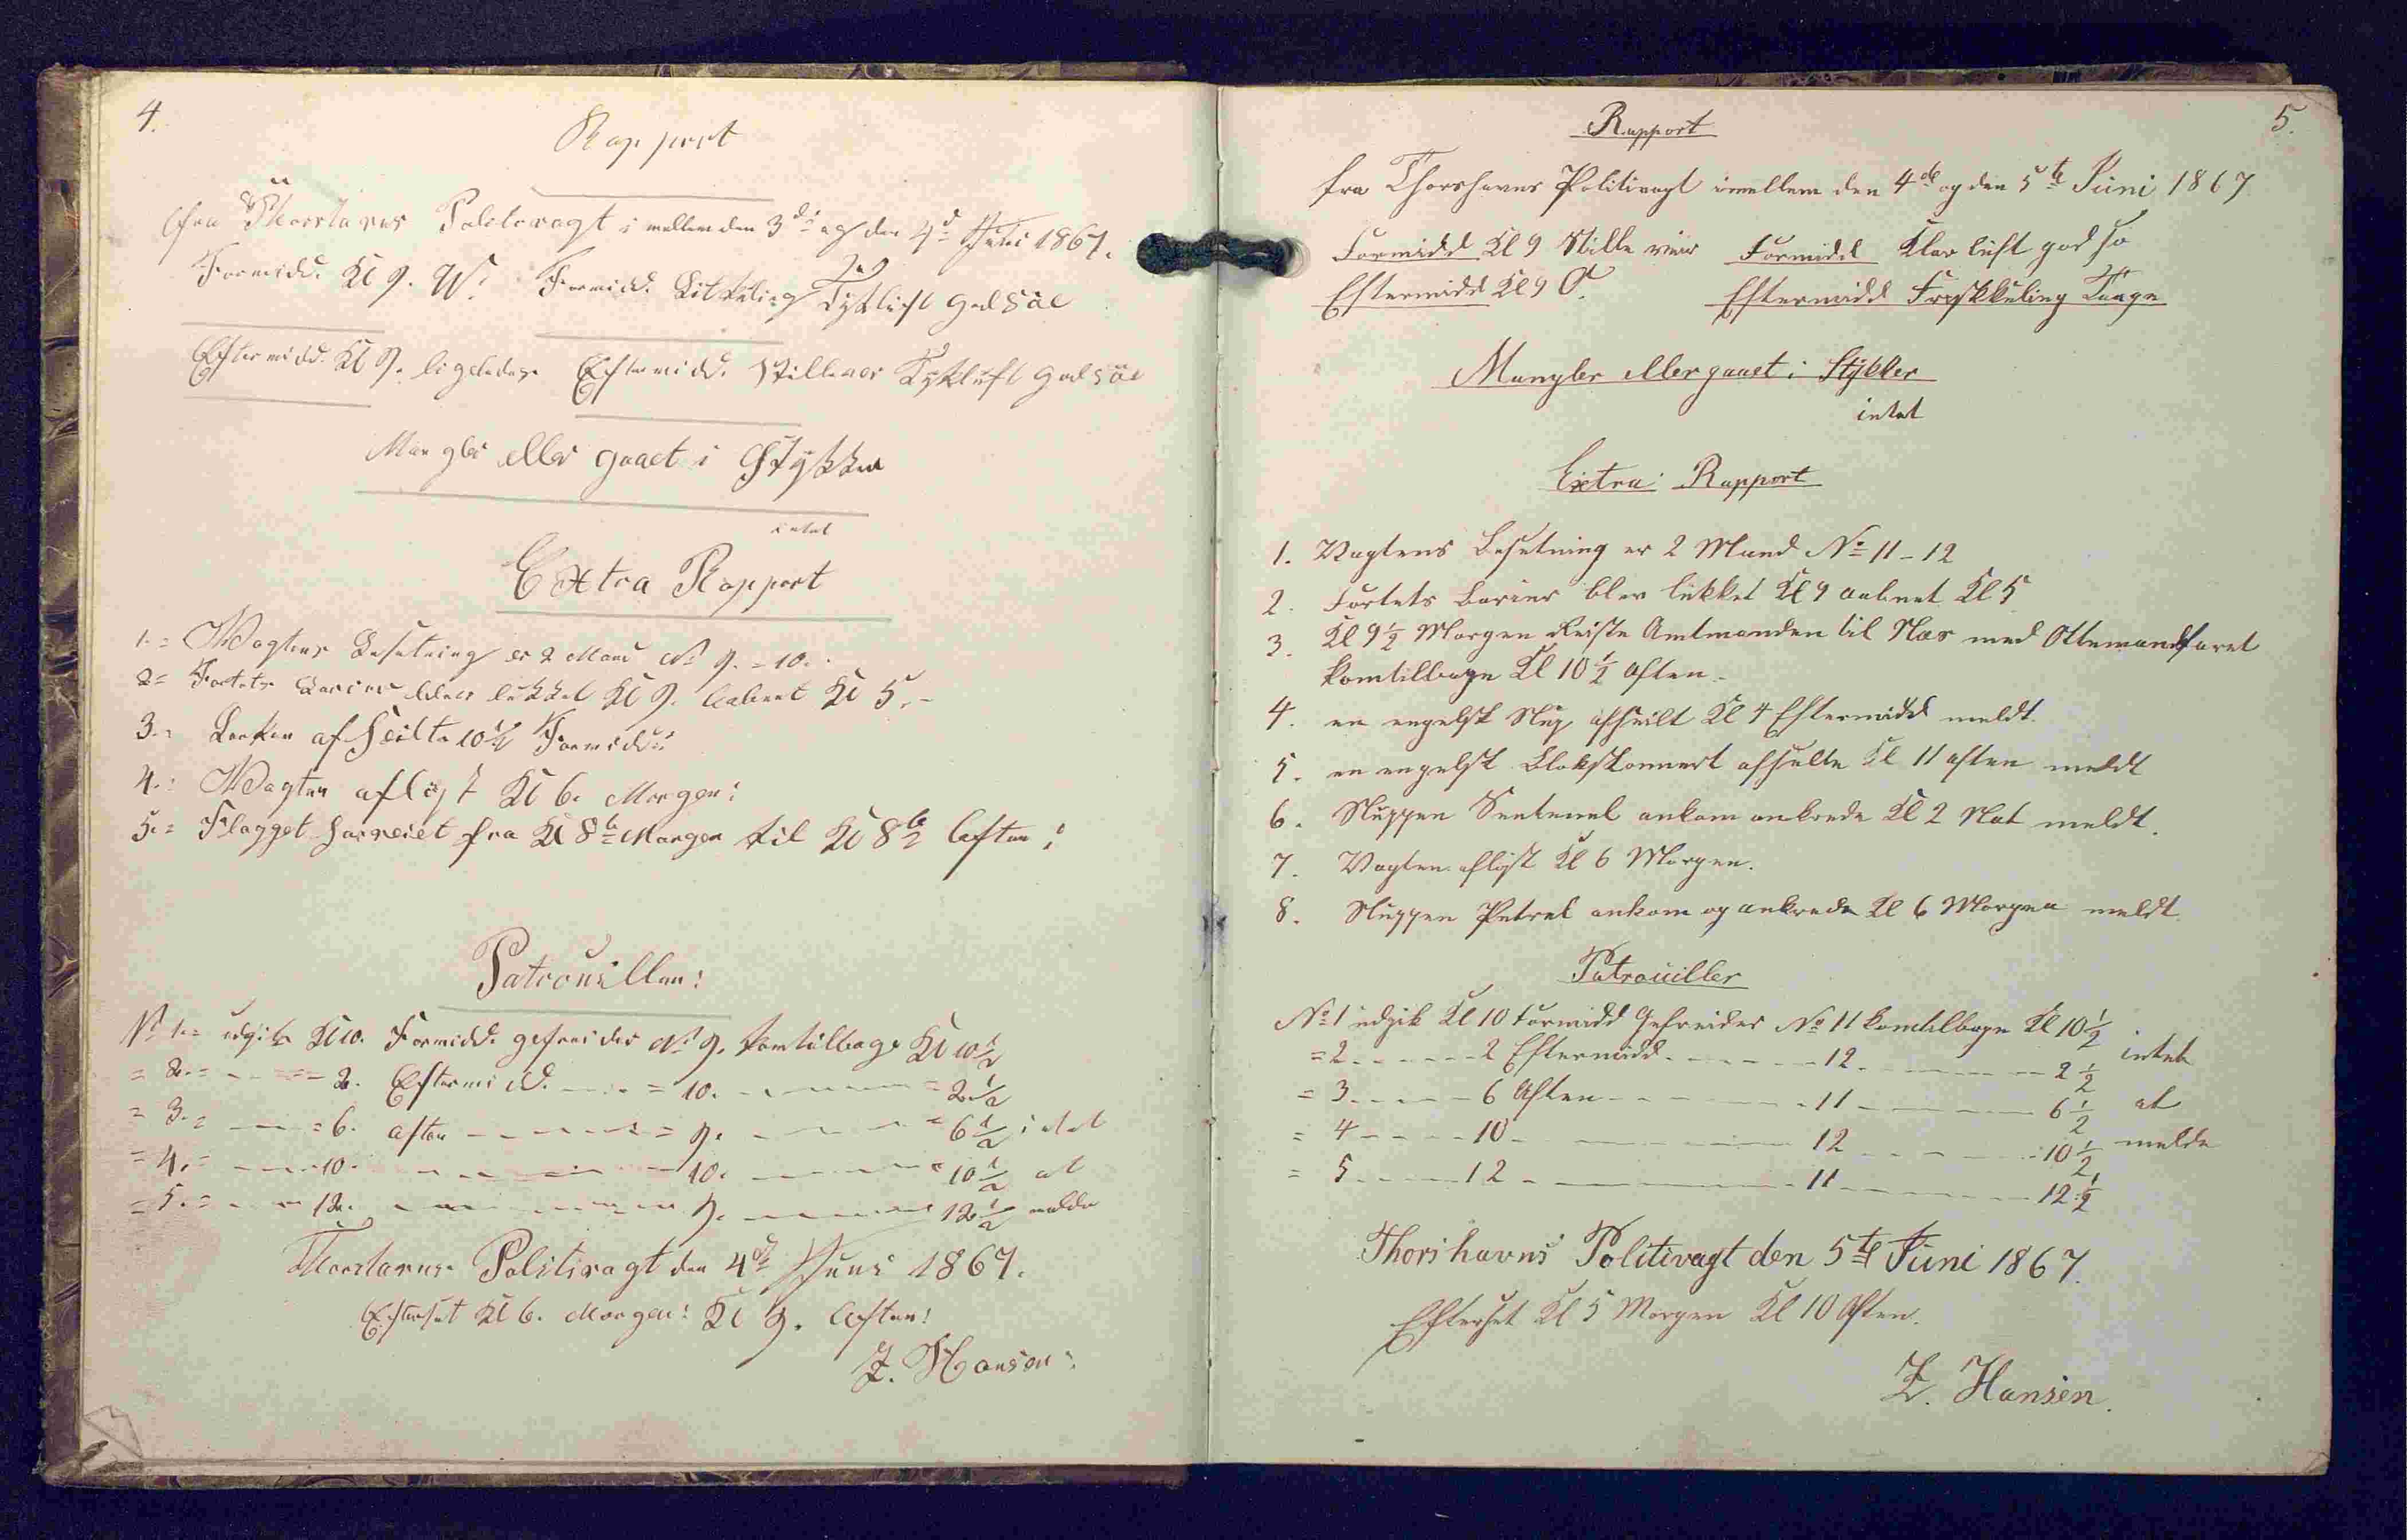 4.
Rapport
fra Thorshavns Politivagt imellem den 3die og den 4d Juni 1867.
Formidd. Kl 9. W. Formidd. Lit Kuling Tykluft God Söe
Eftermidd. Kl 9. ligeledes Eftermidd. Stilleveir Tykluft God Söe
Mangler eller gaaet i Stykker
intet
Extra Rapport
1.= Wagtens Besetning er 2 Mand No 9.-10.
2= Fortets Barier blev lükket Kl 9. Aabnet Kl 5.-
3.= afseilte 10½ Formidd
4.= Wagten aflöst Kl 6. Morgen:
5.= Flagget har veiet fra Kl 8te Morgen til Kl 8te Aften:
Patrouillen:
No 1.= udgik Kl 10. Formidd. gefreider No 9. komtilbage Kl 10½
= 2.= - - - 2. Eftermidd. - - = 10. - - - = 2½
= 3.= - - = 6. aften - - - = 9. - - - = 6½ intet
= 4.= - - 10. - - - 10. - - - = 10½ at
= 5.= - - 12. - - - 9. - - - 12½ melde
Thorshavns Politivagt den 4de Juni 1867.
Efterset Kl 6. Morgen: Kl 9. Aften:
Z. Hansen:
5.
Rapport
fra Thorshavns Politivagt imellem den 4de og den 5te Juni 1867
Formidd Kl 9 Stille veir Formidd Klar lüft god sö
Eftermidd Kl 9 O. Eftermidd Friskküling Taage
Mangler eller gaaet i Stykker
intet
Extra Rapport
1. Vagtens Besetning er 2 Mand No 11-12
2. Fortets Barier blev lükket Kl 9 aabnet Kl 5
3. Kl 9½ Morgen Reiste Amtmanden til Næs med Ottemandsfaret
komtilbage Kl 10½ Aften
4. en engelsk Slup afseilt Kl 4 Eftermidd meldt
5. en engelsk afseilte Kl 11 aften meldt
6. Sluppen Sentenel ankom ankrede Kl 2 Nat meldt.
7. Vagten aflöst Kl 6 Morgen.
8. Sluppen Petrel ankom og ankrede Kl 6 Morgen meldt
Patrouiller
No 1 udgik Kl 10 Formidd Gefreider No 11 komtilbage Kl 10½ intet
= 2 - - - 2 Eftermidd. - - - 12. - - - 2½
= 3 - - - 6 Aften - - - 11 - - - 6½ at
= 4 - - - 10 - - - 12 - - - 10½ melde
= 5 - - - 12 - - - 11 - - - 12½
Thorshavns Politivagt den 5te Juni 1867.
Efterset Kl 5 Morgen Kl 10 Aften.
Z. Hansen.